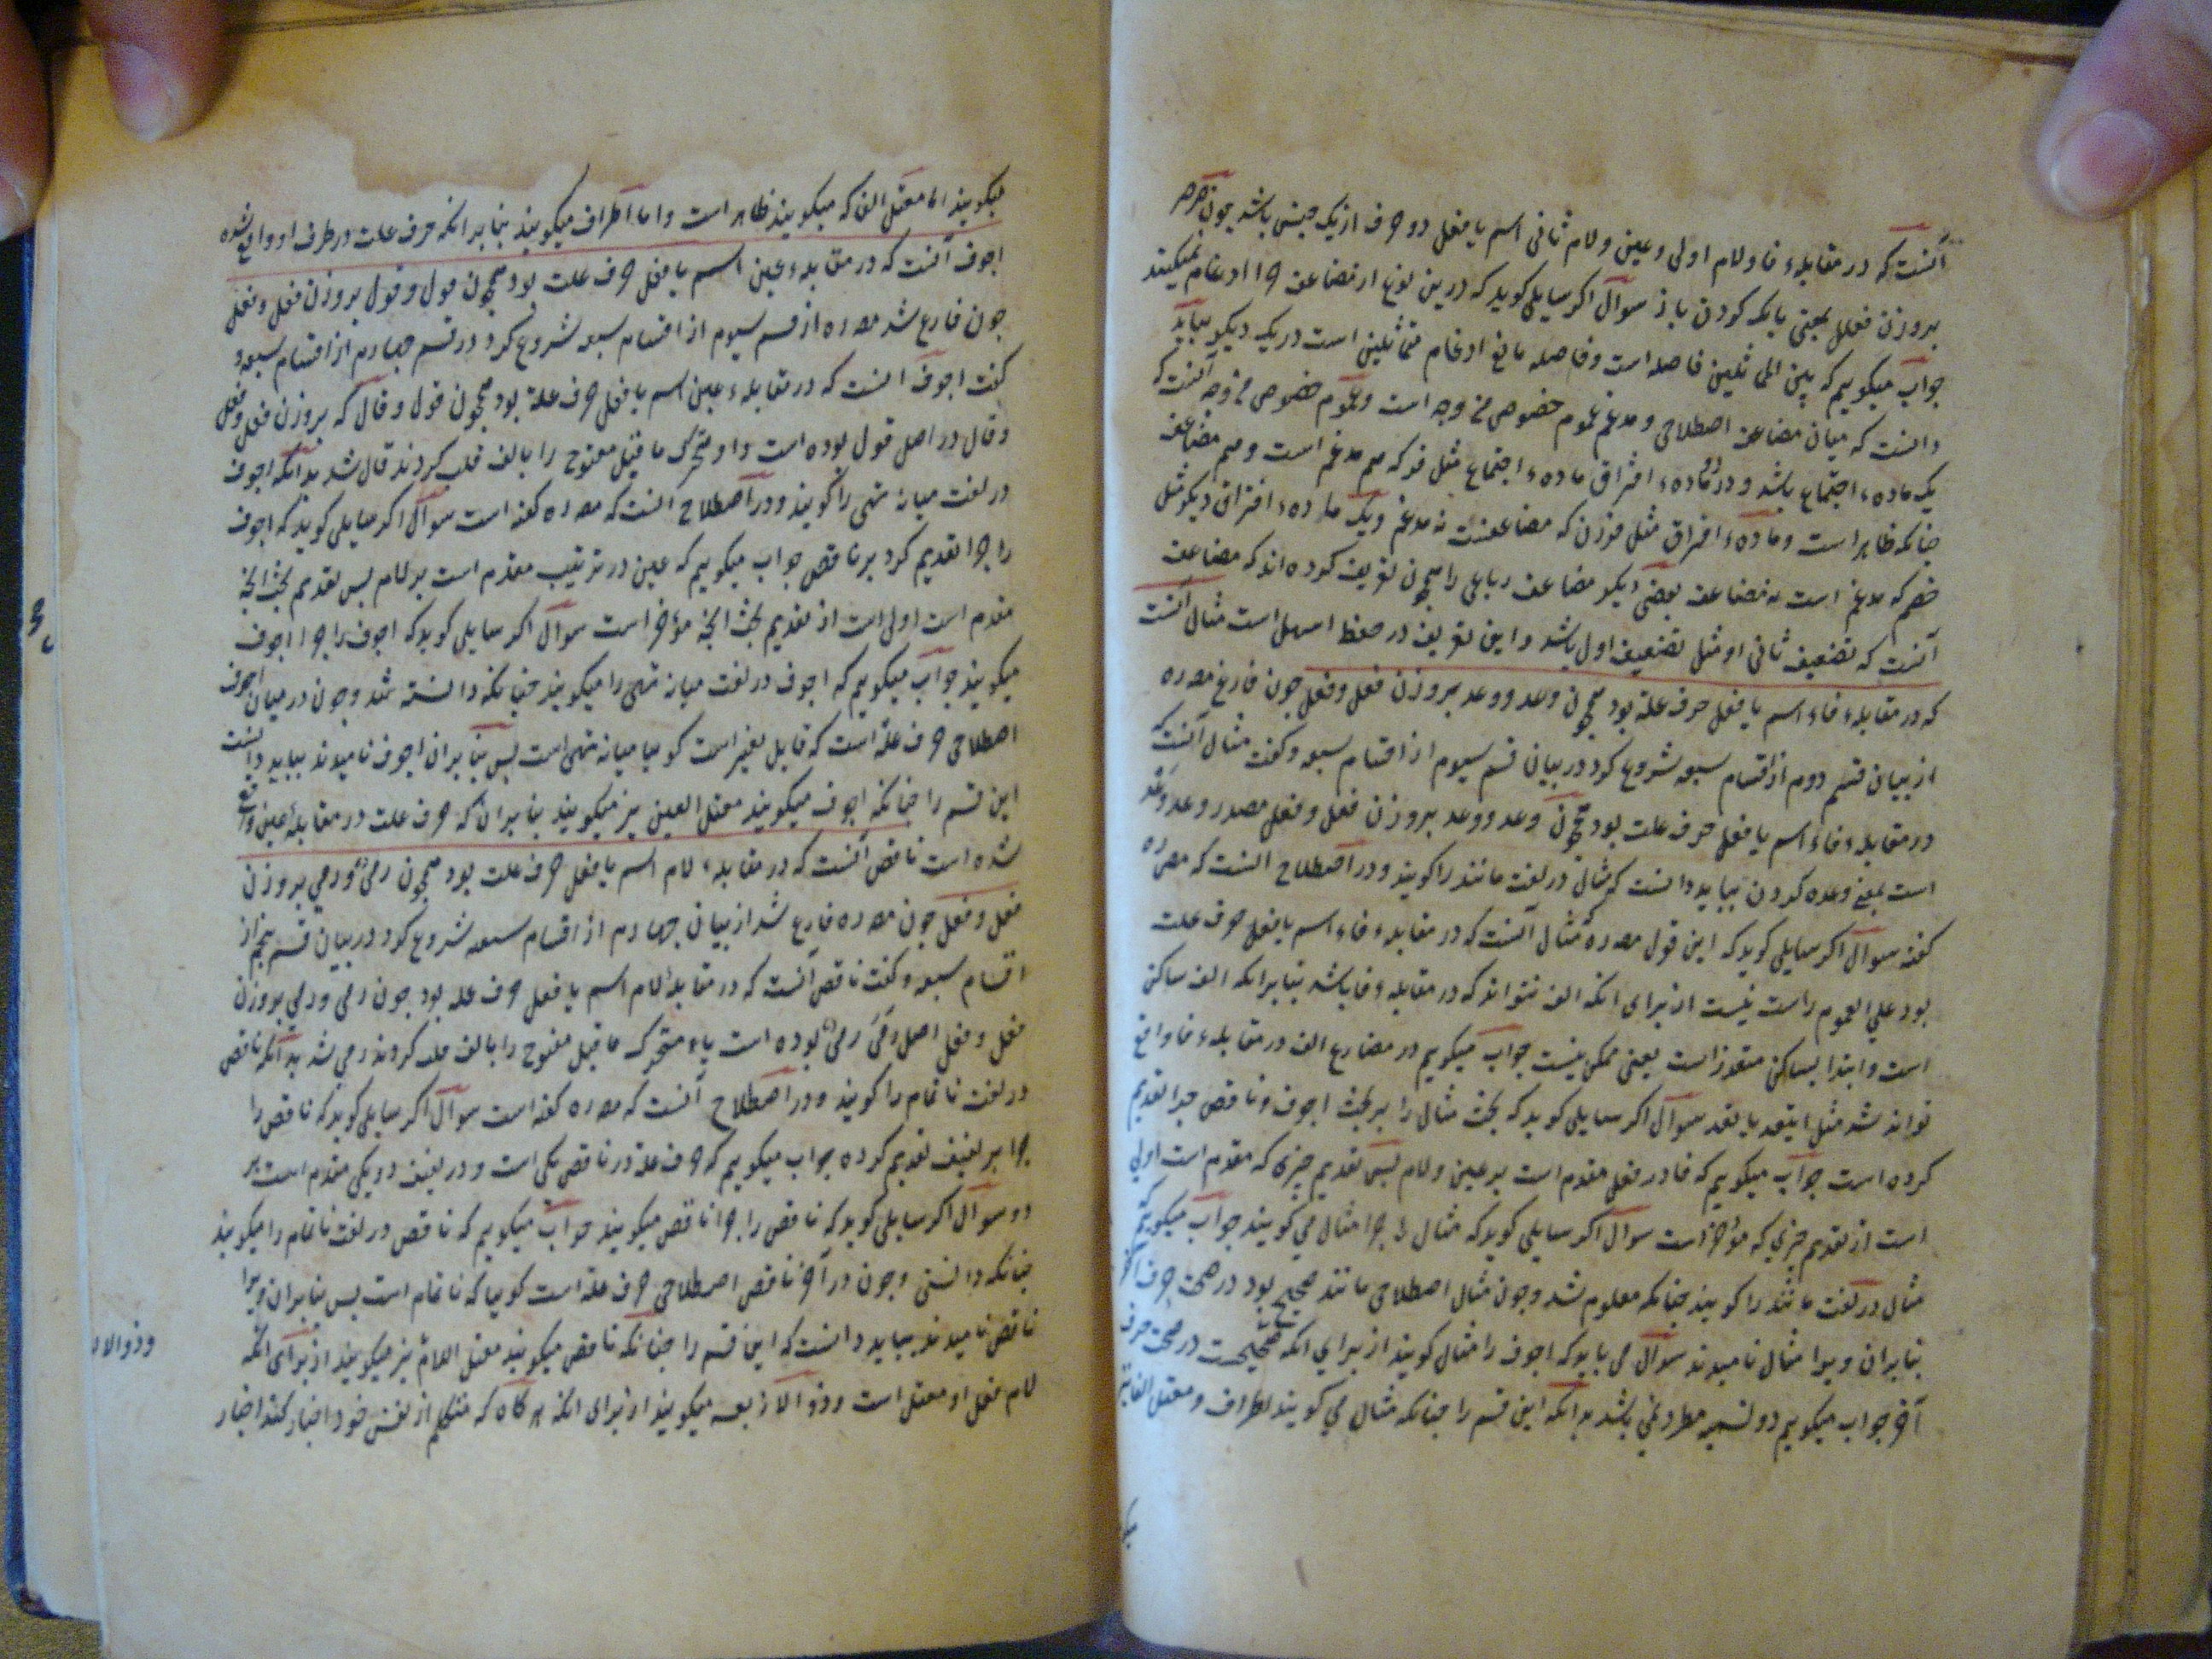 آنست که در مقابله‌ء فا و لام اولی و عین و لام ثانی اسم یا فعل دو حرف از یک جنس باشد چون
بروزن فعلل بمعنی بانک کردن باز سوال اگر سایلی کوید که درین نوع از مضاعف چرا ادغام نمیکنند
جواب میکوییم که بین المتماثلین فاصله است و فاصله مانع ادغام متماثلین است در یک دیکر بباید
دانست که میان مضاعف اصطلاحی و مدغم عموم خصوص من وجه است و عموم خصوص من وجه آنست که
یک ماده‌ء اجتماع باشد و در ماده‌ء افتراق ماده‌ء اجتماع مثل فر که هم مدغم است و هم مضاعف
چنانکه ظاهر است و ماده‌ء افتراق مثل که مضاعفست نه مدغم و یک ماده‌ء افتراق دیکر مثل
که مدغم است نه مضاعف بعضی دیکر مضاعف رباعی را همچون تعریف کرده اند که مضاعف
آنست که تضعیف ثانی او مثل تضعیف اول باشد و این تعریف در حفظ اسهل است مثال آنست
که در مقابله‌ء فاء اسم یا فعل حرف علة بود همچون وعد و وعد بروزن فعل و فعل چون فارغ مصره
از بیان قسم دوم از اقسام سبعه شروع کرد در بیان قسم سیوم از اقسام سبعه و کفت مثال آنست که
در مقابله‌ء فاء اسم یا فعل حرف علت بود همچون وعد و وعد بروزن فعل و فعل مصدر وعد وعد
است بمعنی وعده کردن بباید دانست که مثال در لغت مانند را کویند و در اصطلاح آنست که مصره
کفته سوال اگر سایلی کوید که این قول مصره مثال آنست که در مقابله‌ء فاء اسم یا فعل حرف علت
بود علی العموم راست نیست از برای انکه الف نتواند که در مقابله‌ء فا باشد بنابر انکه الف ساکن
است و ابتدا بساکن متعذر است یعنی ممکن نیست جواب میکوییم در مضارع الف در مقابله‌ء فا واقع
تواند شد مثل ایتعد یاتعد سوال اگر سایلی کوید که بحث مثال را بر بحث اجوف و ناقص چرا تقدیم
کرده است جواب میکوییم که فا در فعل مقدم است بر عین و لام پس تقدیم چیزی که مقدم است اولی
است از تقدیم چیزی که مؤخر است سوال اگر سایلی کوید که مثال را چرا مثال می کویند جواب میکوییم که
مثال در لغت مانند را کویند چنانکه معلوم شد و چون مثال اصطلاحی مانند صحیح بود در صحت حرف آخر
بنابران ویرا مثال نامیدند سوال می باید که اجوف را مثال کویند از برای انکه صحیحست در صحت حرف
آخر جواب میکوییم دو تسمیه مطرد نمی باشد بدانکه این قسم را چنانکه مثال می کویند اطراف و معتل الفا نیز
میکویند اما معتل الفا که میکویند ظاهر است و اما اطراف میکویند بنابر انکه حرف علت در طرف او واقع شده
اجوف آنست که در مقابله‌ء عین اسم یا فعل حرف علت بود همچون قول و قول بروزن فعل و فعل
چون فارغ شد مصره از قسم سیوم از اقسام سبعه شروع کرد در قسم چهارم از اقسام سبعه و
کفت اجوف آنست که در مقابله‌ء عین اسم یا فعل حرف علة بود همچون قول و قال که بروزن فعل و فعل
و قال در اصل قول بوده است واو متحرک ماقبل مفتوح را بالف قلب کردند قال شد بدانکه اجوف
در لغت میان تهی را کویند و در اصطلاح آنست که مصره کفته است سوال اگر سایلی کوید که اجوف
را چرا تقدیم کرد بر ناقص جواب میکوییم که عین در ترتیب مقدم است بر لام پس تقدیم بحث انچه
مقدم است اولی است از تقدیم بحث انچه مؤخر است سوال اگر سایلی کوید که اجوف را چرا اجوف
میکویند جواب میکوییم که اجوف در لغت میان تهی را میکویند چنانکه دانسته شد و چون در میان اجوف
اصطلاحی حرف علة است که قابل تغیر است کویا میانه تهی است پس بنابران اجوف نامیدند بباید دانست
این قسم را چنانکه اجوف میکویند معتل العین نیز میکویند بنابران که حرف علت در مقابله عین واقع
شده است ناقص آنست که در مقابله‌ء لام اسم یا فعل حرف علت بود همچون رمی و رمی بروزن
فعل و فعل چون مصره فارغ شد از بیان چهارم از اقسام سبعه شروع کرد در بیان قسم پنجم از
اقسام سبعه و کفت ناقص آنست که در مقابله لام اسم یا فعل حرف علة بود چون رمی و رمی بروزن
فعل و فعل اصل رمی رمی بوده است یاء متحرک ماقبل مفتوح را بالف قلب کردند رمی شد بدانکه ناقص
در لغت ناتمام را کویند و در اصطلاح آنست که مصره کفته است سوال اگر سایلی کوید که ناقص را
چرا بر لفیف تقدیم کرده جواب میکوییم که حرف علة در ناقص یکی است و در لفیف دو یکی مقدم است بر
دو سوال اگر سایلی کوید که ناقص را چرا ناقص میکویند جواب میکوییم که ناقص در لغت ناتمام را میکویند
چنانکه دانستی و چون در آخر ناقص اصطلاحی حرف علة است کویا که ناتمام است پس بنابران ویرا
ناقص نامیدند بباید دانست که این قسم را چنانکه ناقص میکویند معتل اللام نیز میکویند از برای انکه
لام فعل او معتل است و ذو الاربعه میکویند از برای انکه هرکاه که متکلم از نفس خود اخبار کند اخبار
وذو الار